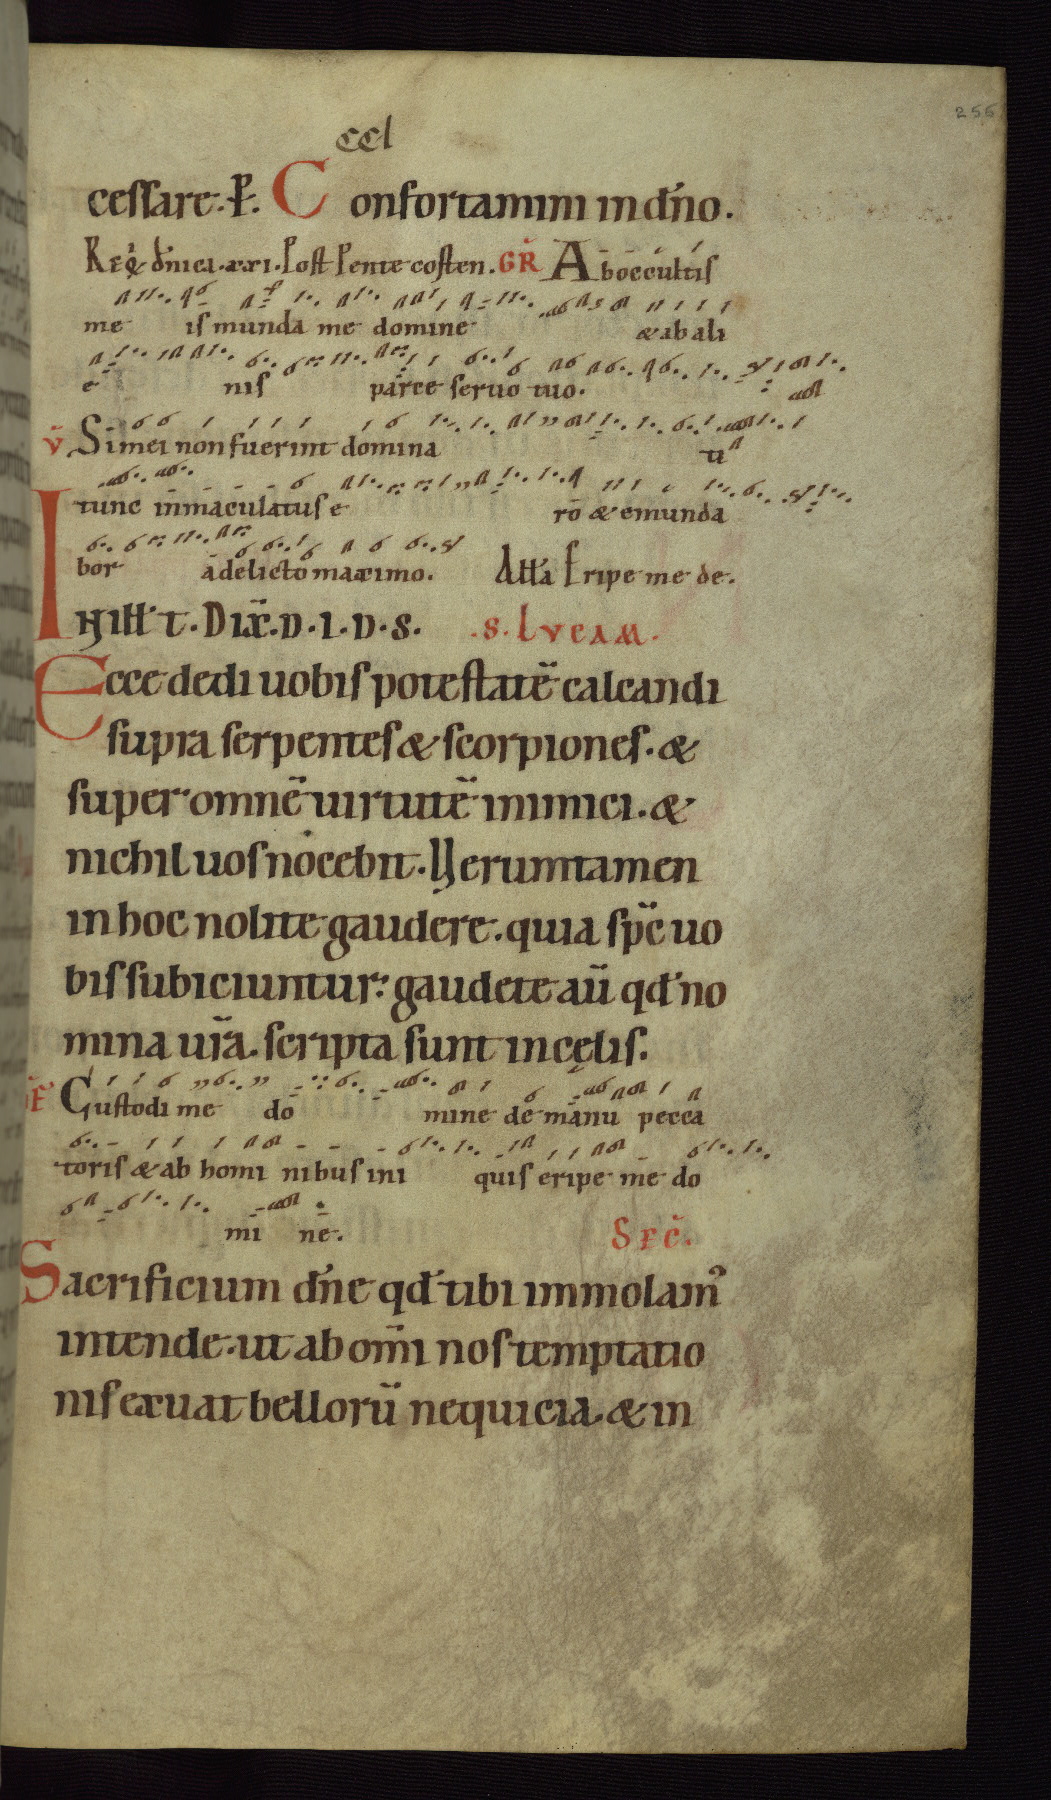 255
ccl
cessare. P̄. Confortamini in dn̄o.
Req̄ dn̄ici. xxi. Post Pentecosten. GR̄ Ab occultis
me is munda me domine & ab ali
e nis parce seruo tuo.
v̄. Si mei non fuerint domina ti
tunc inmaculatus e ro & emunda
bor a delicto maximo. Att̄a Eripe me de.
IN ill̄ t̄. Dix̄. D. I. D. S. .S. LVCAM.
Ecce dedi uobis potestatē calcandi
supra serpentes & scorpiones. &
super omnē uirtutē inimici. &
nichil uos nocebit. Veruntamen
in hoc nolite gaudere. quia sp̄c uo
bis subiciuntur: gaudete aū qd̄ no
mina ur̄a. scripta sunt in cęlis.
Custodi me do mine de manu pecca
toris & ab homi nibus ini quis eripe me do
mi ne. SEC̄.
Sacrificium dn̄e qd̄ tibi immolam᾽
intende. ut ab om̄i nos temptatio
nis exuat bellorū nequicia. & in